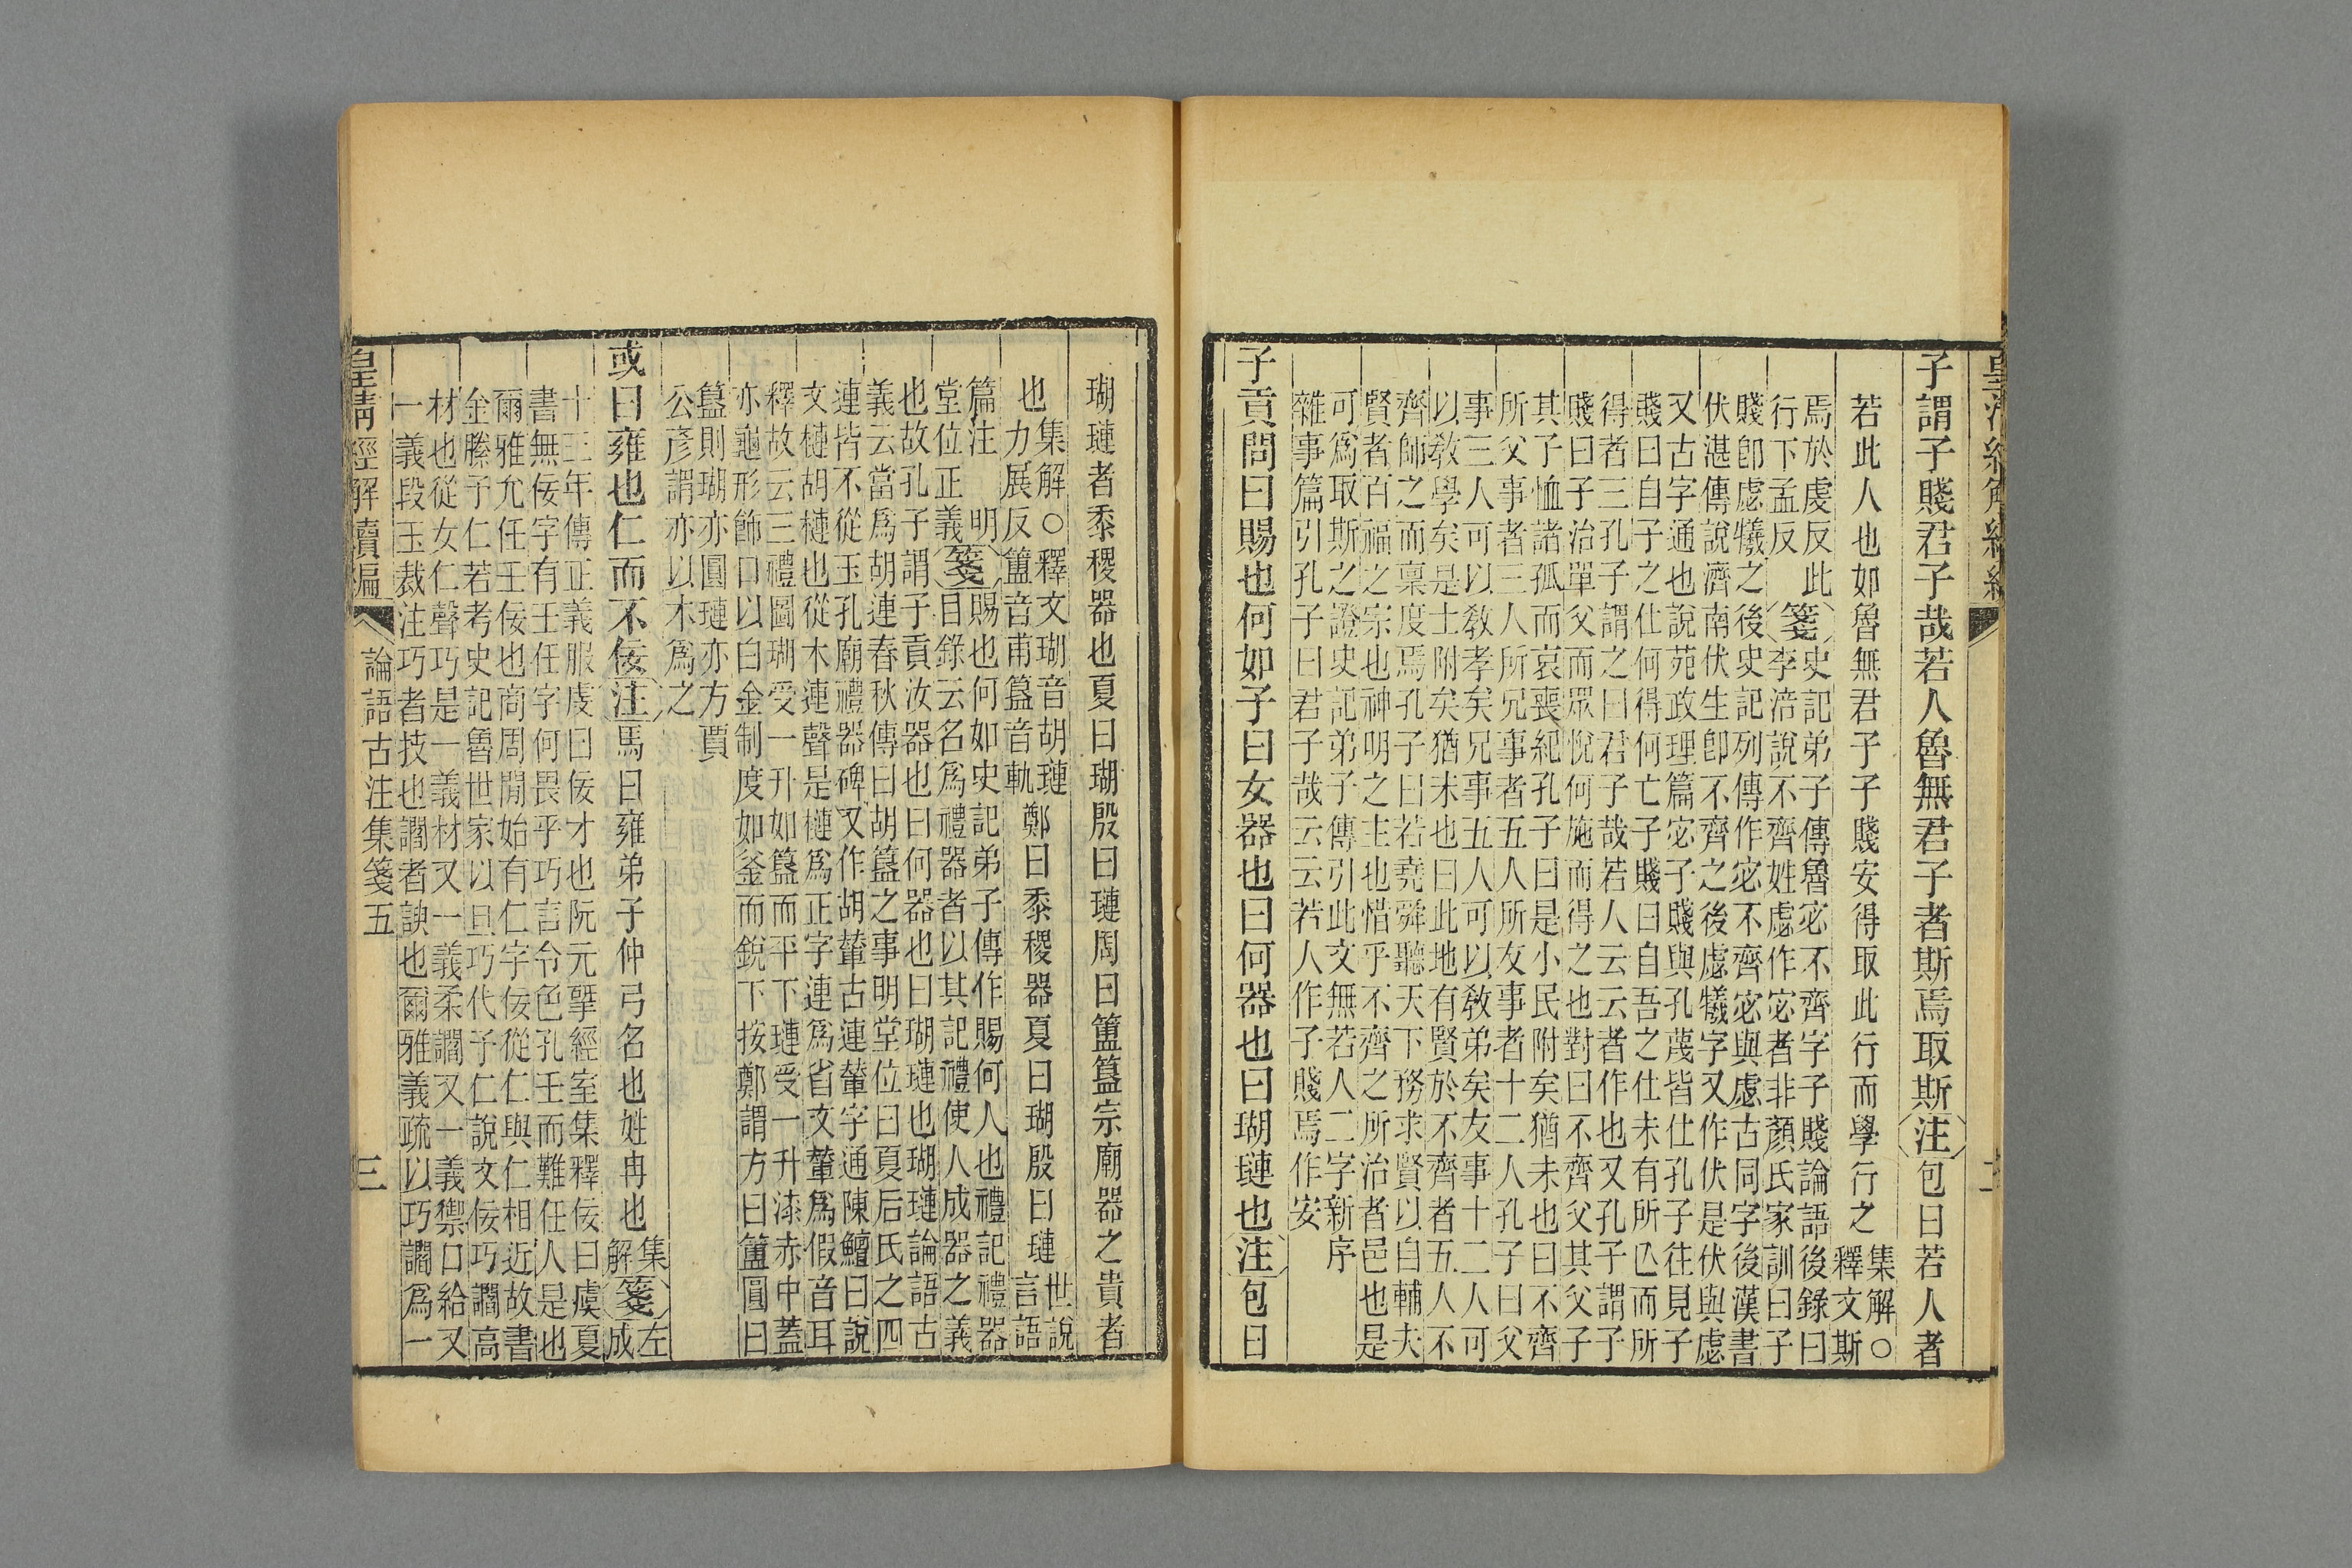 子謂子賤君子哉若人魯無君子者斯焉取斯注包曰若人者
若此人也如魯無君子子賤安得取此行而學行之集解○
釋文斯
焉於虔反此
行下孟反
箋
史記弟子傳魯宓不齊字子賤論語後錄曰
李涪說不齊姓虙作宓者非顏氏家訓曰子
賤卽虙犧之後史記列傳作宓不齊宓與虙古同字後漢書
伏湛傳說濟南伏生卽不齊之後虙犧字又作伏是伏與虙
又古字通也說苑政理篇宓子賤與孔蔑皆仕孔子往見子
賤曰自子之仕何得何亡子賤曰自吾之仕未有所亾而所
得者三孔子謂之曰君子哉若人云云者作也又孔子謂子
賤曰子治單父而眾悅何施而得之也對曰不齊父其父子
其子恤諸孤而哀喪紀孔子曰是小民附矣猶未也曰不齊
所父事者三人所兄事者五人所友事者十二人孔子曰父
事三人可以敎孝矣兄事五人可以敎弟矣友事十二人可
以敎學矣是士附矣猶未也曰此地有賢於不齊者五人不
齊師之而稟度焉孔子曰若堯舜聽天下務求賢以自輔夫
賢者百福之宗也神明之主也惜乎不齊之所治者邑也是
可爲取斯之證史記弟子傳引此文無若人二字新序
雜事篇引孔子曰君子哉云云若人作子賤焉作安
子貢問曰賜也何如子曰女器也曰何器也曰瑚璉也注包曰
瑚璉者黍稷器也夏曰瑚殷曰璉周曰簠簋宗廟器之貴者
也
集解○釋文瑚音胡璉
力展反簠音甫簋音軌
鄭曰黍稷器夏曰瑚殷曰璉
世說
言語
篇注明
堂位正義
箋
賜也何如史記弟子傳作賜何人也禮記禮器
目錄云名爲禮器者以其記禮使人成器之義
也故孔子謂子貢汝器也曰何器也曰瑚璉也瑚璉論語古
義云當爲胡連春秋傳曰胡簋之事明堂位曰夏后氏之四
連皆不從玉孔廟禮器碑又作胡輦古連輦字通陳鱣曰說
文槤胡槤也從木連聲是槤爲正字連爲省文輦爲假音耳
釋故云三禮圖瑚受一升如簋而平下璉受一升漆赤中蓋
亦龜形飾口以白金制度如釜而銳下按鄭謂方曰簠圓曰
簋則瑚亦圓璉亦方賈
公彥謂亦以木爲之
或曰雍也仁而不佞注馬曰雍弟子仲弓名也姓冉也集
解
箋左
成
十三年傳正義服虔曰佞才也阮元揅經室集釋佞曰虞夏
書無佞字有壬任字何畏乎巧言令色孔壬而難任人是也
爾雅允任壬佞也商周閒始有仁字佞從仁與仁相近故書
金縢予仁若考史記魯世家以旦巧代予仁說文佞巧讇高
材也從女仁聲巧是一義材又一義柔讇又一義禦口給又
一義段玉裁注巧者技也讇者諛也爾雅義疏以巧讇爲一
皇清經解續編　論語古注集箋五　三